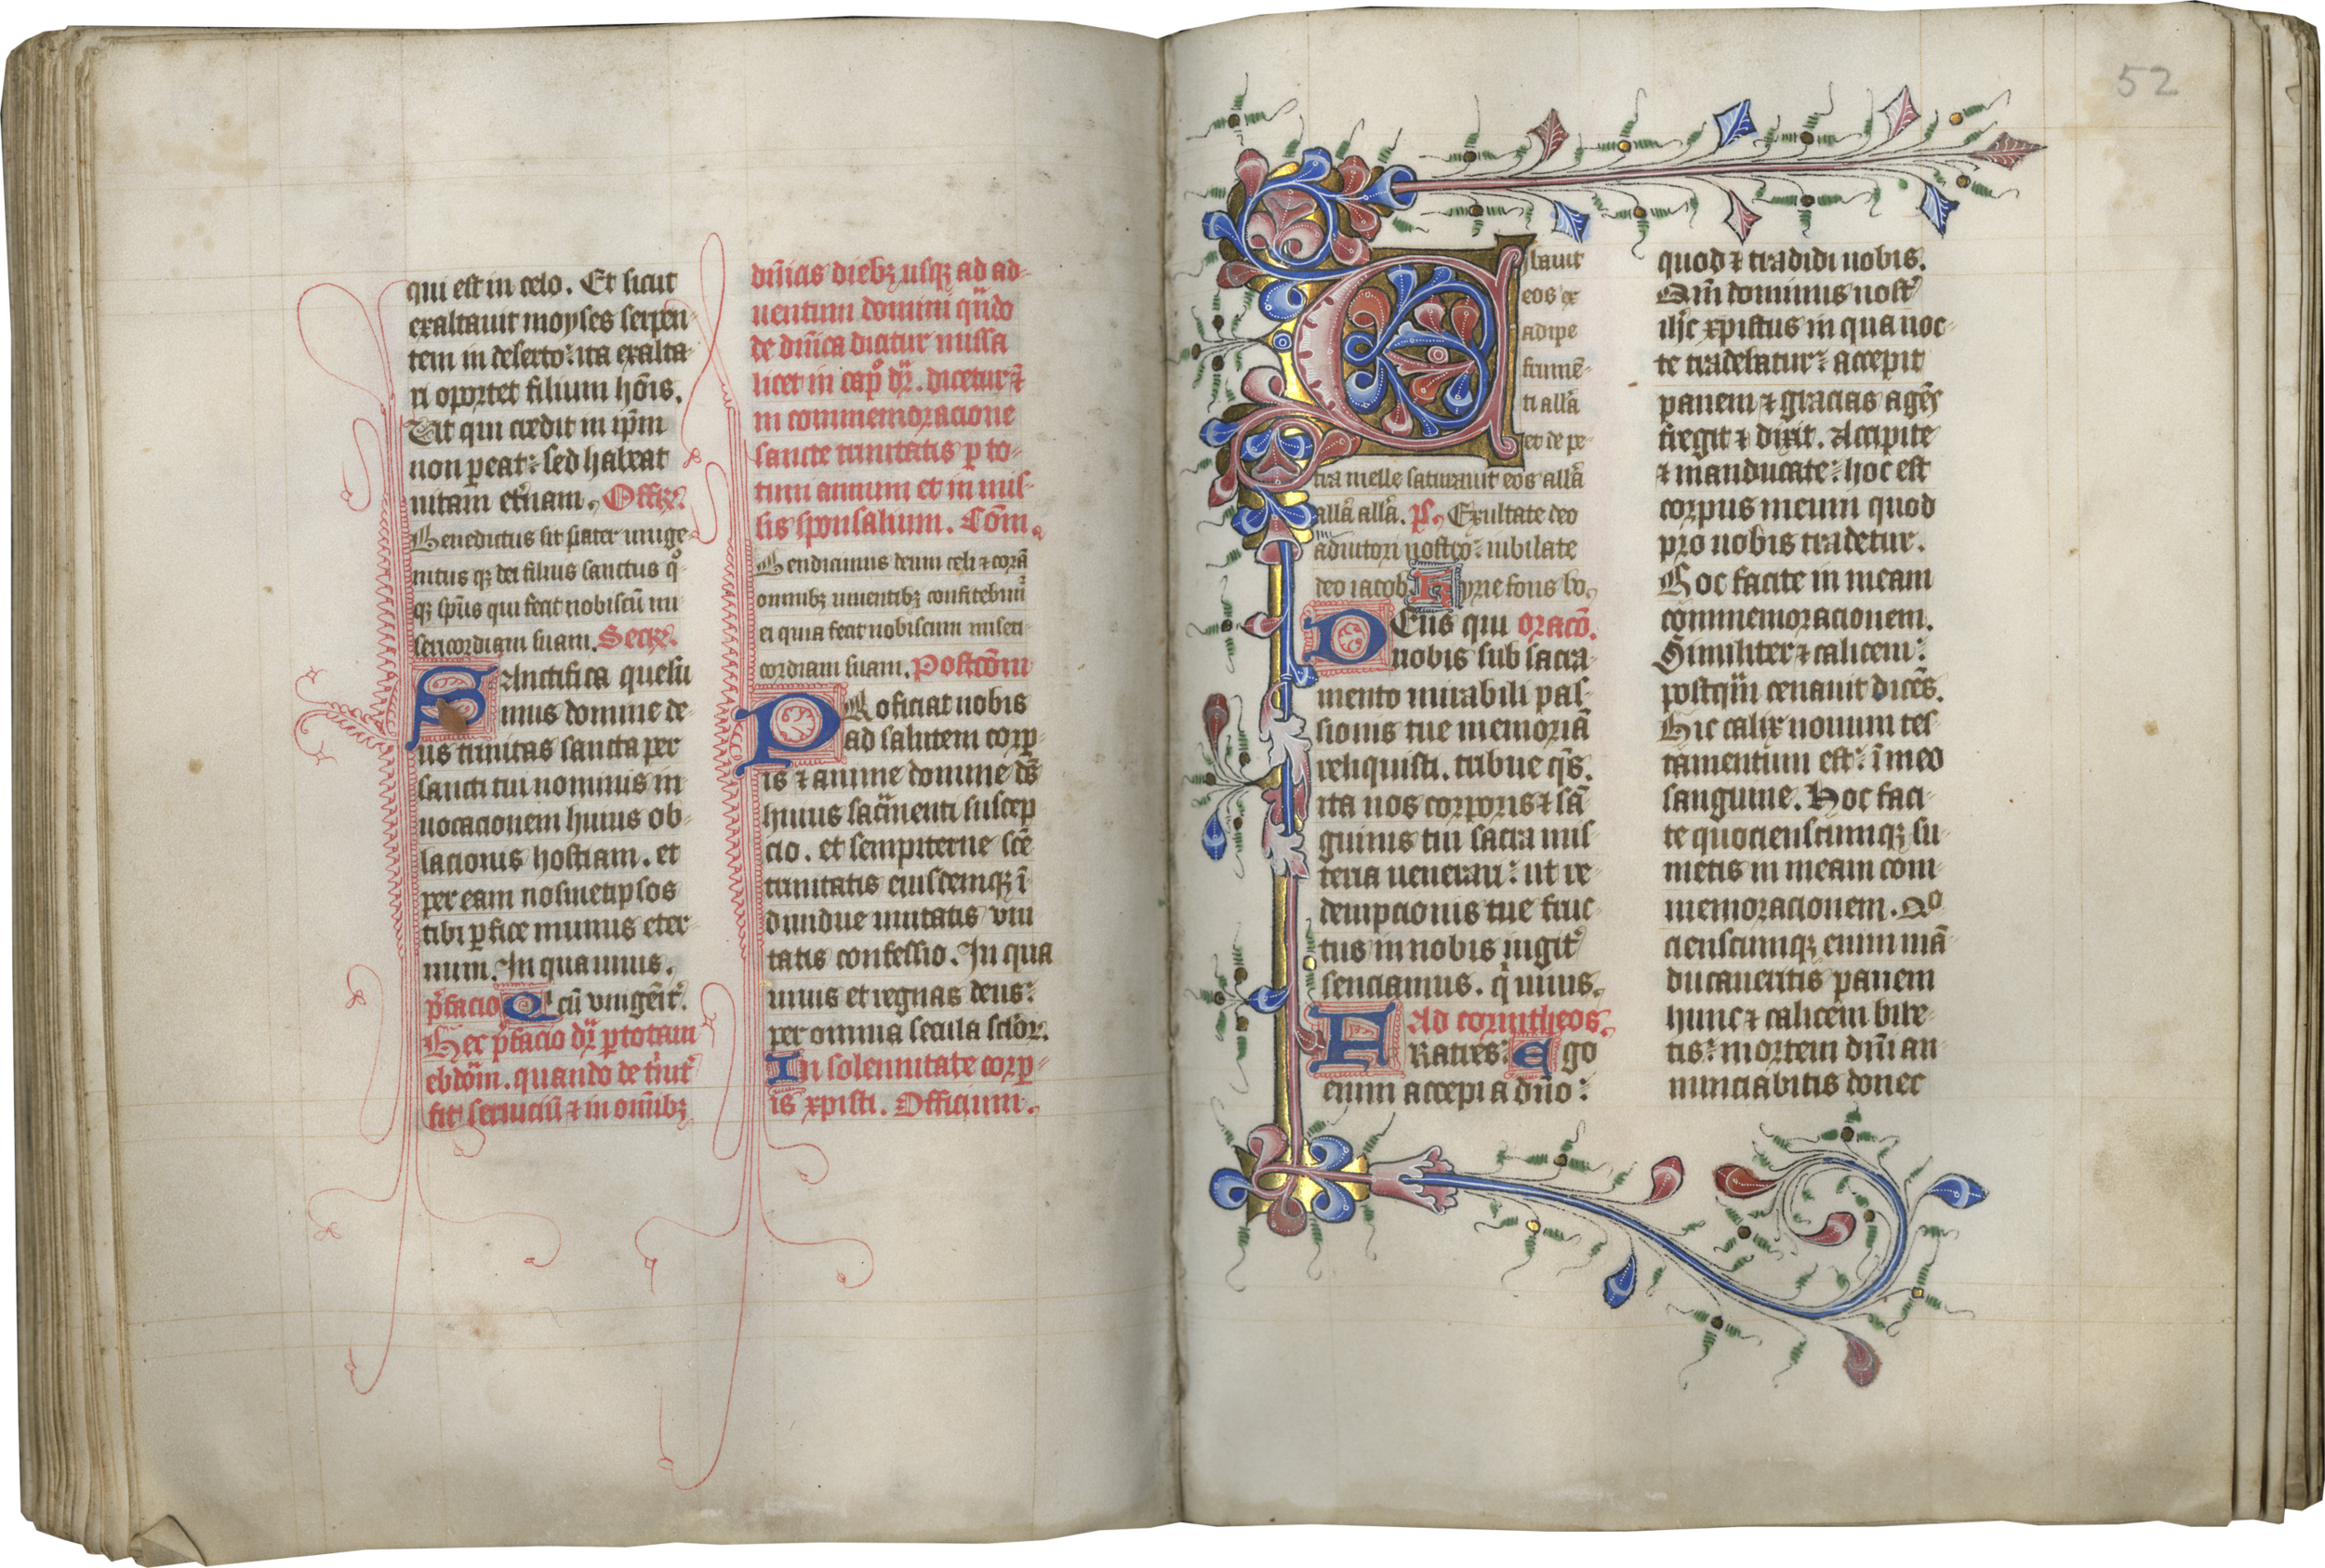 qui est in celo. Et sicut
exaltauit moyses serpen-
tem in deserto: ita exalta-
ri oportet filium hōis.
Ut qui credit in ip̄m
non ꝑeat: sed habeat
uitam et̄nam. Offiꝝ.
Benedictus sit pater unige-
nitus qꝫ dei filius sanctus qͦ
qꝫ sp̄us qui fecit nobiscū mi-
sericordiam suam. Secꝝ.
SAnctifica quesu
mus domine de-
us trinitas sancta per
sancti tui nominis in
uocacionem huius ob-
lacionis hostiam. et
per eam nosmetipsos
tibi ꝑfice munus eter-
num. In qua unus.
p̄facio Q cū vnigēit᷒.
Hec p̄facio dr̄ ꝑ totam
ebdōm. quando de t̄nit᷒
fit seruiciū ⁊ in om̄ibꝫ
dn̄icis diebꝫ usqꝫ ad ad-
uentum domini qn̄do
de dn̄ica dicitur missa
licet in capͦ dr̄. dicetur ⁊
in commemoracione
sancte trinitatis ꝑ to-
tum annum et in mis-
sis sponsalium. Cōm.
Bendicimus deum celi ⁊ corā
omnibꝫ uiuentibꝫ confitebim̄
ei quia fecit nobiscum miseri
cordiam suam. Postcōm
PRoficiat nobis
ad salutem corꝑ-
is ⁊ anime domine ds̄
huius sac̄menti suscep
cio. et sempiterne scē
trinitatis eiusdemqꝫ ī
diuidue unitatis vni
tatis confessio. In qua
uiuis et regnas deus:
per omnia secula sclōꝝ.
In solennitate corꝑ-
is xpisti. Officium.
52
Cibauit
eos ex
adipe
frumē-
ti allā
et de pe-
tra melle saturauit eos allā
allā allā. ps. Exultate deo
adiutori nostro: iubilate
deo iacob. Kyrie fons bo.
DEus qui oracō.
nobis sub sacra-
mento mirabili pas-
sionis tue memoriā
reliquisti. tribue qs̄.
ita nos corporis ⁊ sā
guinis tui sacra mis-
teria uenerari: ut re-
dempcionis tue fruc-
tus in nobis iugit᷒
senciamus. q̄ uiuis.
Ad corintheos.
FRatres: Ego
enim accepi a dn̄o:
quod ⁊ tradidi uobis.
Qm̄ dominus nost᷒
ih̄c xpistus in qua noc-
te tradebatur: accepit
panem ⁊ gracias agēs
fregit ⁊ dixit. Accipite
⁊ manducate: hoc est
corpus meum quod
pro uobis tradetur.
Hoc facite in meam
commemoracionem.
Similiter ⁊ calicem:
postqm̄ cenauit dicēs.
Hic calix nouum tes-
tamentum est: ī meo
sanguine. Hoc faci-
te quocienscumqꝫ su-
metis in meam com-
memoracionem. Qͦ
cienscumqꝫ enim mā-
ducaueritis panem
hunc ⁊ calicem bibe-
tis: mortem dn̄i an-
nunciabitis donec